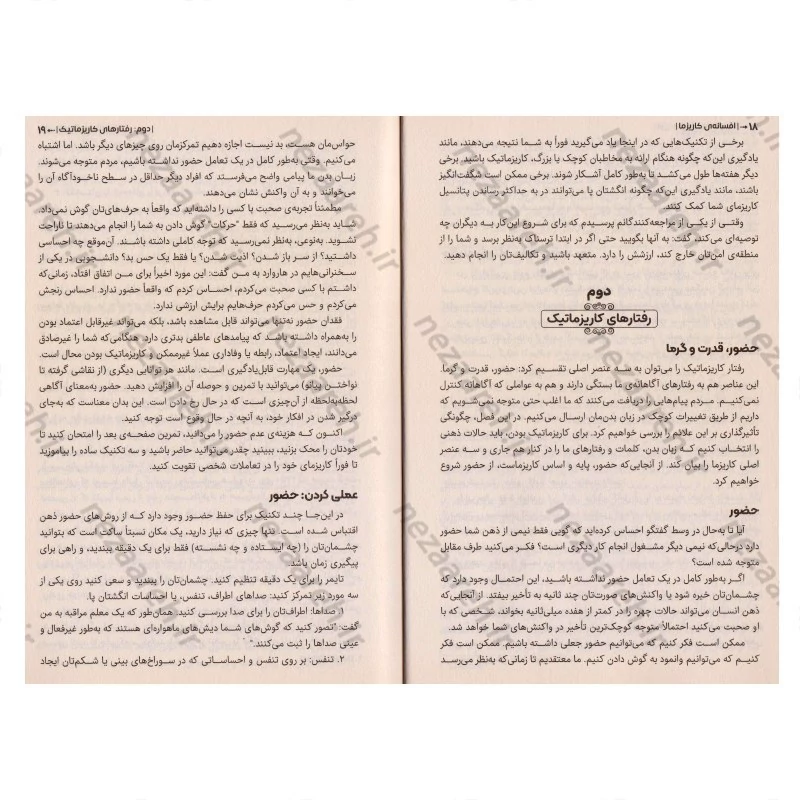 ۱۸ → | افسانه‌ی کاریزما |
برخی از تکنیک‌هایی که در اینجا یاد می‌گیرید فوراً به شما نتیجه می‌دهند، مانند
یادگیری این‌که چگونه هنگام ارائه به مخاطبان کوچک یا بزرگ، کاریزماتیک باشید. برخی
دیگر هفته‌ها طول می‌کشد تا به‌طور کامل آشکار شوند. برخی ممکن است شگفت‌انگیز
باشند، مانند یادگیری این‌که چگونه انگشتان پا می‌توانند در به حداکثر رساندن پتانسیل
کاریزمای شما کمک کنند.
وقتی از یکی از مراجعه‌کنندگانم پرسیدم که برای شروع این‌کار به دیگران چه
توصیه‌ای می‌کند، گفت: به آنها بگویید حتی اگر در ابتدا ترسناک به‌نظر برسد و شما را از
منطقه‌ی امن‌تان خارج کند، ارزشش را دارد. متعهد باشید و تکالیف‌تان را انجام دهید.
دوم
رفتارهای کاریزماتیک
حضور، قدرت و گرما
رفتار کاریزماتیک را می‌توان به سه عنصر اصلی تقسیم کرد: حضور، قدرت و گرما.
این عناصر هم به رفتارهای آگاهانه‌ی ما بستگی دارند و هم به عواملی که آگاهانه کنترل
نمی‌کنیم. مردم پیام‌هایی را دریافت می‌کنند که ما اغلب حتی متوجه نمی‌شویم که
داریم از طریق تغییرات کوچک در زبان بدن‌مان ارسال می‌کنیم. در این فصل، چگونگی
تأثیرگذاری بر این علائم را بررسی خواهیم کرد. برای کاریزماتیک بودن، باید حالات ذهنی
را انتخاب کنیم که زبان بدن، کلمات و رفتارهای ما را در کنار هم جاری و سه عنصر
اصلی کاریزما را بیان کند. از آنجایی‌که حضور، پایه و اساس کاریزماست، از حضور شروع
خواهیم کرد.
حضور
آیا تا به‌حال در وسط گفتگو احساس کرده‌اید که گویی فقط نیمی از ذهن شما حضور
دارد درحالی‌که نیمی دیگر مشغول انجام کار دیگری است؟ فکر می‌کنید طرف مقابل
متوجه شده است؟
اگر به‌طور کامل در یک تعامل حضور نداشته باشید، این احتمال وجود دارد که
چشمان‌تان خیره شود یا واکنش‌های صورت‌تان چند ثانیه به تأخیر بیفتد. از آنجایی‌که
ذهن انسان می‌تواند حالات چهره را در کمتر از هفده میلی‌ثانیه بخواند، شخصی که با
او صحبت می‌کنید احتمالاً متوجه کوچک‌ترین تأخیر در واکنش‌های شما خواهد شد.
ممکن است فکر کنیم که می‌توانیم حضور جعلی داشته باشیم. ممکن است فکر
کنیم که می‌توانیم وانمود به گوش دادن کنیم. ما معتقدیم تا زمانی‌که به‌نظر می‌رسد
| دوم: رفتارهای کاریزماتیک | ← ۱۹
حواس‌مان هست، بد نیست اجازه دهیم تمرکزمان روی چیزهای دیگر باشد. اما اشتباه
می‌کنیم. وقتی به‌طور کامل در یک تعامل حضور نداشته باشیم، مردم متوجه می‌شوند.
زبان بدن ما پیامی واضح می‌فرستد که افراد دیگر حداقل در سطح ناخودآگاه آن را
می‌خوانند و به آن واکنش نشان می‌دهند.
مطمئناً تجربه‌ی صحبت با کسی را داشته‌اید که واقعاً به حرف‌های‌تان گوش نمی‌داد.
شاید به‌نظر می‌رسید که فقط "حرکات" گوش دادن به شما را انجام می‌دهند تا ناراحت
نشوید. به‌نوعی، به‌نظر نمی‌رسید که توجه کاملی داشته باشند. آن‌موقع چه احساسی
داشتید؟ از سر باز شدن؟ اذیت شدن؟ یا فقط یک حس بد؟ دانشجویی در یکی از
سخنرانی‌هایم در هاروارد به من گفت: این مورد اخیراً برای من اتفاق افتاد، زمانی‌که
داشتم با کسی صحبت می‌کردم، احساس کردم که واقعاً حضور ندارد. احساس رنجش
می‌کردم و حس می‌کردم حرف‌هایم برایش ارزشی ندارد.
فقدان حضور نه‌تنها می‌تواند قابل مشاهده باشد، بلکه می‌تواند غیرقابل اعتماد بودن
را به‌همراه داشته باشد که پیامدهای عاطفی بدتری دارد. هنگامی‌که شما را غیرصادق
می‌دانند، ایجاد اعتماد، رابطه یا وفاداری عملاً غیرممکن و کاریزماتیک بودن محال است.
حضور، یک مهارت قابل‌یادگیری است. مانند هر توانایی دیگری (از نقاشی گرفته تا
نواختن پیانو) می‌توانید با تمرین و حوصله آن را افزایش دهید. حضور به‌معنای آگاهی
لحظه‌به‌لحظه از آن‌چیزی است که در حال رخ دادن است. این بدان معناست که به‌جای
درگیر شدن در افکار خود، به آنچه در حال وقوع است توجه کنید.
اکنون که هزینه‌ی عدم حضور را می‌دانید، تمرین صفحه‌ی بعد را امتحان کنید تا
خودتان را محک بزنید، ببینید چقدر می‌توانید حاضر باشید و سه تکنیک ساده را بیاموزید
تا فوراً کاریزمای خود را در تعاملات شخصی تقویت کنید.
عملی کردن: حضور
در این‌جا چند تکنیک برای حفظ حضور وجود دارد که از روش‌های حضور ذهن
اقتباس شده است. تنها چیزی که نیاز دارید، یک مکان نسبتاً ساکت است که بتوانید
چشمان‌تان را (چه ایستاده و چه نشسته) فقط برای یک دقیقه ببندید، و راهی برای
پیگیری زمان باشد.
تایمر را برای یک دقیقه تنظیم کنید. چشمان‌تان را ببندید و سعی کنید روی یکی از
سه مورد زیر تمرکز کنید: صداهای اطراف، تنفس، یا احساسات انگشتان پا.
۱. صداها: اطراف‌تان را برای صدا بررسی کنید. همان‌طور که یک معلم مراقبه به من
گفت: "تصور کنید که گوش‌های شما دیش‌های ماهواره‌ای هستند که به‌طور غیرفعال و
عینی صداها را ثبت می‌کنند."
۲. تنفس: بر روی تنفس و احساساتی که در سوراخ‌های بینی یا شکم‌تان ایجاد
nezaareh.ir